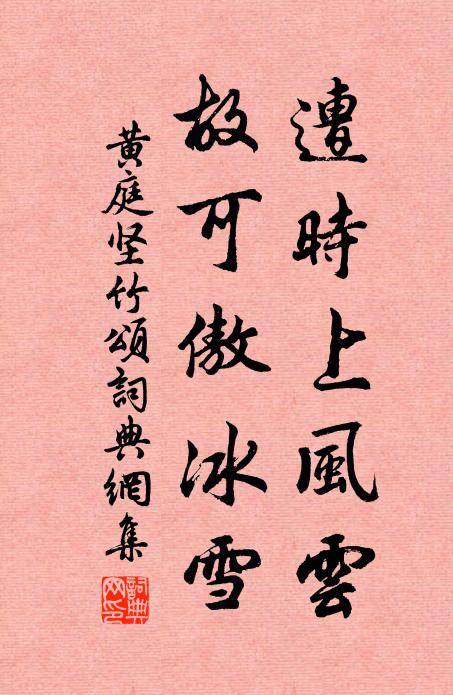 遭時上風雲
故可傲冰雪
黄庭坚竹頌詞典網集
詞典網印